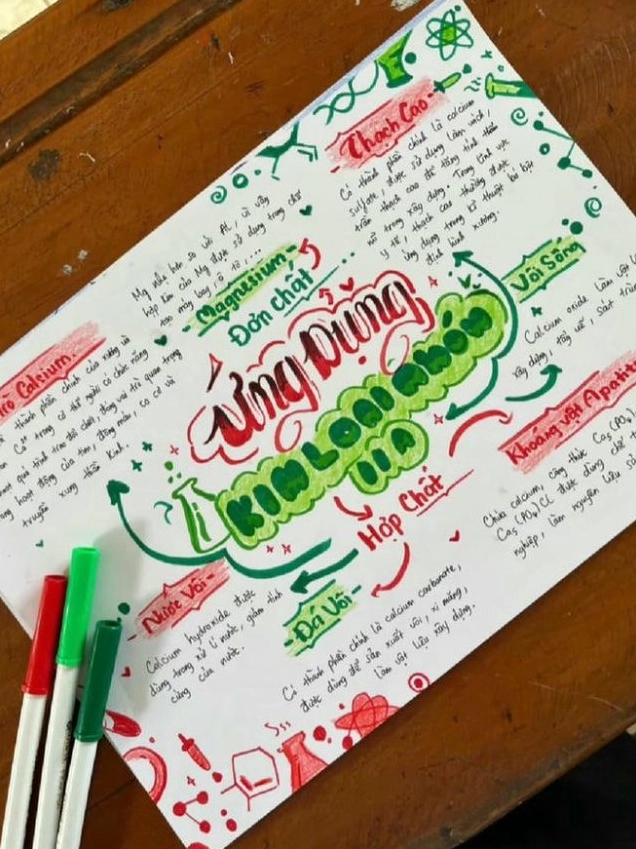 Thạch Cao
Có thành phần chính là calcium
sulfate, được sử dụng làm vách,
trần thạch cao để tăng tính thẩm
mĩ trong xây dựng. Trong lĩnh vực
y tế, thạch cao thường được
ứng dụng trong kĩ thuật bó bột
định hình xương.
Mg nhẹ hơn so với Al, vì vậy
hợp kim của Mg được sử dụng trong chế
tạo máy bay, ô tô,...
Magnesium
Đơn Chất
Vôi Sống
Calcium oxide làm vật
xây dựng, tẩy uế, sát trùn
Ứng Dụng
KIM LOẠI NHÓM
IIA
trò Calcium.
thành phần chính của xương và
Ca²⁺ trong cơ thể người có chức năng
quá trình trao đổi chất, đóng vai trò quan trọng
hoạt động của tim, đông máu, co cơ và
truyền xung thần kinh.
Khoáng vật Apatit
Chứa calcium, công thức Ca₅(PO₄)
Ca₅(PO₄)₃Cl được dùng để
nghiệp, làm nguyên liệu
Hợp Chất
Nước Vôi
Calcium hydroxide được
dùng trong xử lí nước, giảm tính
cứng của nước.
Đá Vôi
Có thành phần chính là calcium carbonate,
được dùng để sản xuất vôi, xi măng,
làm vật liệu xây dựng.